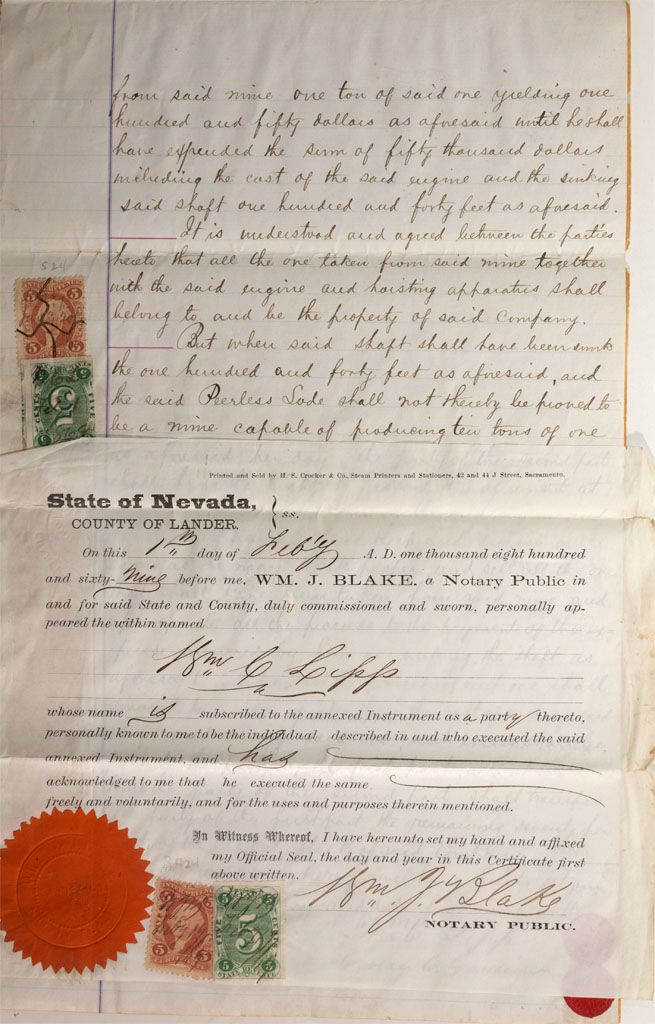 from said mine one ton of said ore yielding one
hundred and fifty dollars as aforesaid until he shall
have expended the sum of fifty thousand dollars
including the cost of the said engine and the sinking
said shaft one hundred and forty feet as aforesaid.
It is understood and agreed between the parties
hereto that all the ore taken from said mine together
with the said engine and hoisting apparatus shall
belong to and be the property of said Company.
But when said shaft shall have been sunk
the one hundred and forty feet as aforesaid, and
the said Peerless Lode shall not thereby be proved to
be a mine capable of producing ten tons of ore
S 24
5 5
Printed and Sold by H. S. Crocker & Co., Steam Printers and Stationers, 42 and 44 J Street, Sacramento.
State of Nevada, } ss.
COUNTY OF LANDER.
On this 1st day of Feb'y A. D. one thousand eight hundred
and sixty-nine before me, WM. J. BLAKE, a Notary Public in
and for said State and County, duly commissioned and sworn, personally ap-
peared the within named
Wm C Lipp
whose name is subscribed to the annexed Instrument as a party thereto,
personally known to me to be the individual described in and who executed the said
annexed Instrument, and has
acknowledged to me that he executed the same
freely and voluntarily, and for the uses and purposes therein mentioned.
In Witness Whereof, I have hereunto set my hand and affixed
my Official Seal, the day and year in this Certificate first
above written.
Wm. J. Blake
NOTARY PUBLIC.
5 5
5 5 5